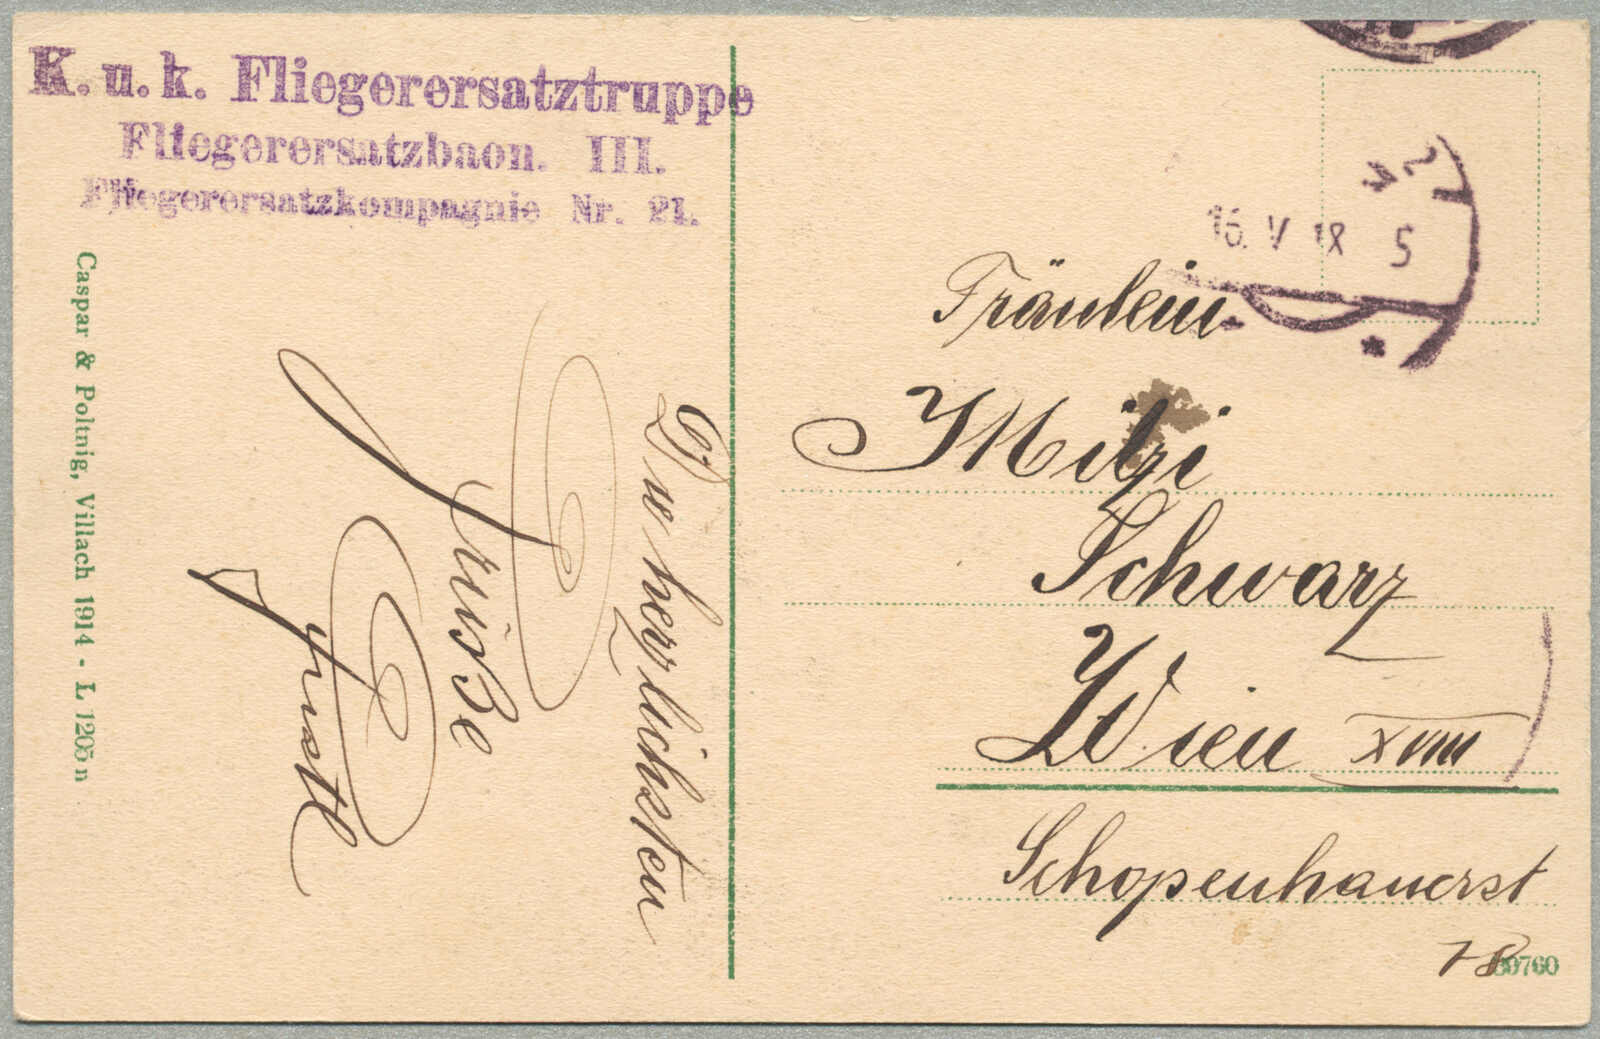 K. u. k. Fliegerersatztruppe
Fliegerersatzbaon. III.
Fliegerersatzkompagnie Nr. 21.
Caspar & Poltnig, Villach 1914 - L 1205 n
Die herzlichsten
Grüsse
Gustl
16. V 18 5
Fräulein
Mitzi
Schwarz
Wien XVIII
Schopenhauerst
78
60760